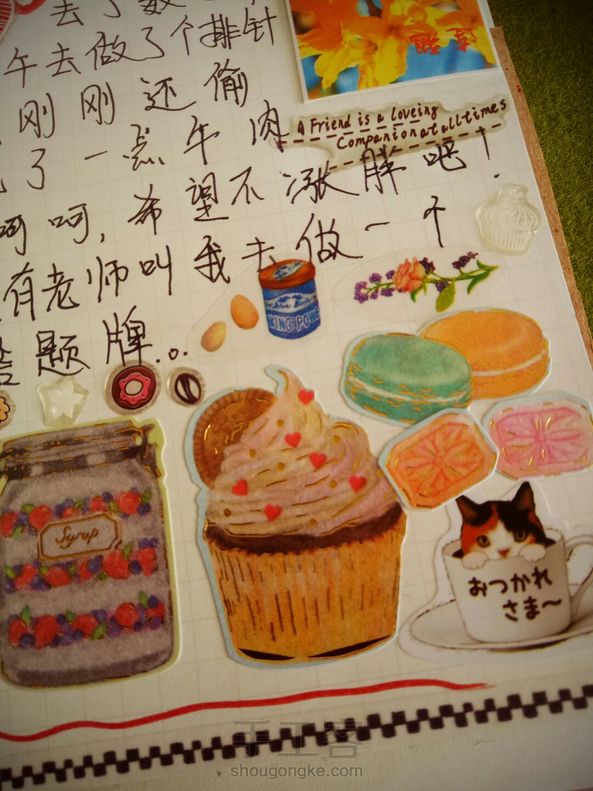 午去做了个排针
刚刚还偷
了一点牛肉
呵呵,希望不涨胖吧!
有老师叫我去做一个
答题牌...
A Friend is a loveing
Companion at all times
KING POWE
Syrup
おつかれ
さま〜
手工客
shougongke.com